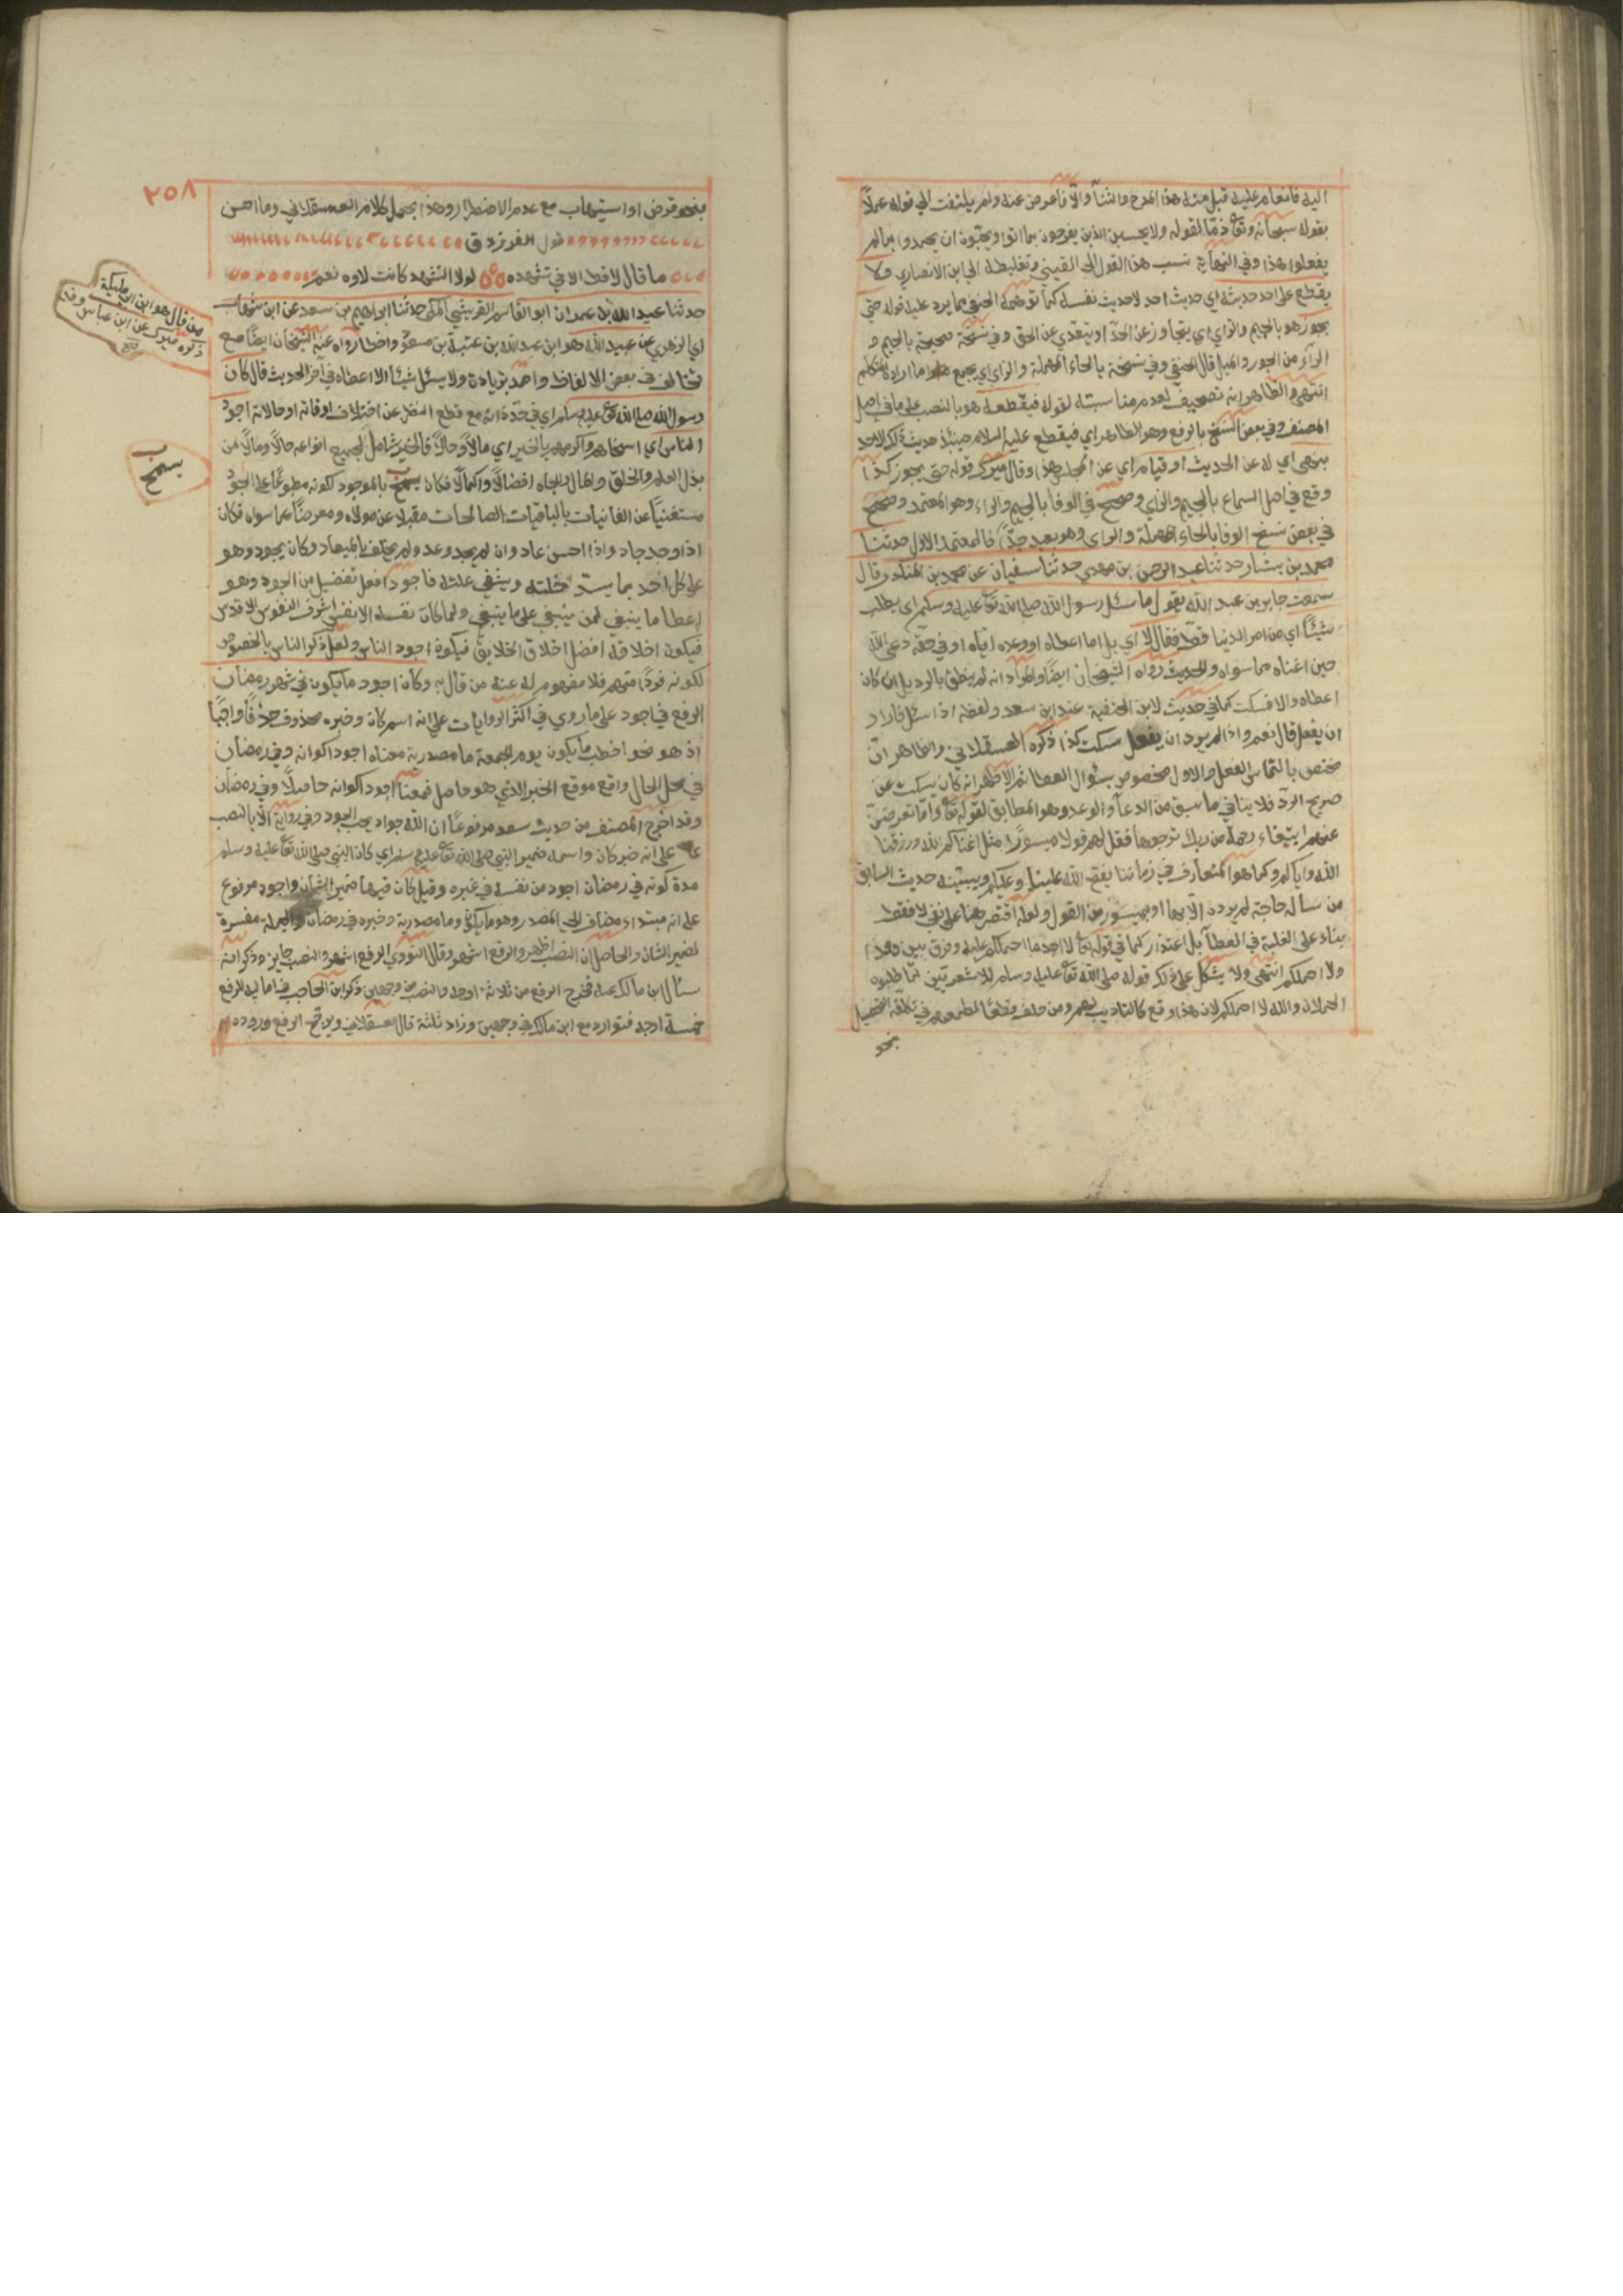 اليه فانعام عليه قبل منه هذا المدح والثنآ والّا فاعرض عنه ولم يلتفت الي قوله عملاً
بقوله سبحانه وتع ذمّا لقوله ولا يحسبن الذين يفرحون بما اتوا ويحبّون ان يحمدوا بما لم
يفعلوا هذا وفي النهاية نسب هذا القول الي القتيبي وتغليطه الي ابن الانباري ولا
يقطع علي احد حديثه اي حديث احد لا حديث نفسه كما توهمه الحنفي مما يرد عليه قوله حتي
يجوز هو بالجيم والزاي اي يتجاوز عن الحدّ او يتعدي عن الحق وفي نسخة صحيحة بالجيم و
الرآء من الجور والميل قال الحنفي وفي نسخة بالحاء المهملة والزاي اي يجمع ما اراده المتكلم
انتهي والظاهر انه تصحيف لعدم مناسبته لقوله فيقطعه هو بالنصب علي ما في اصل
المصنف وفي بعض النسخ بالرفع وهو الظاهر اي فيقطع عليه السلام حينئذ حديث ذلك الاحد
بنهي اي له عن الحديث او قيام اي عن المجلس هذا وقال ميرك قوله حتي يجوز كذا
وقع في اصل السماع بالجيم والزاي وصحح في الوفا بالجيم والراء وهو المعتمد وصحح
في بعض نسخ الوفا بالحاء المهملة والزاي وهو بعيد جدّا فالمعتمد الاول حدثنا
محمد بن بشار حدثنا عبد الرحمن بن مهدي حدثنا سفيان عن محمد بن المنكدر قال
سمعت جابر بن عبد الله يقول ما سئل رسول الله صلي الله تع عليه وسلم اي يطلب
شيئًا اي من امر الدنيا قط فقال لا اي بل اما اعطاه او وعده اياه او في حقه دعي الله
حين اغناه مما سواه والحديث رواه الشيخان ايضًا والمراد انه لم ينطق بالرد بل ان كان
اعطاه والا فسكت كما في حديث لابن الحنفية عند ابن سعد ولفظه اذا سئل فاراد
ان يفعل قال نعم واذا لم يرد ان يفعل سكت كذا ذكره العسقلاني والظاهر انّ
مختص بالتماس الفعل والاول مخصوص بسئوال العطا ثم الاظهر انه كان يسكت عن
صريح الردّ فلا ينافي ما سبق من الدعآ والوعد وهو المطابق لقوله تع وامّا تعرضنّ
عنهم ابتغاء رحمة من ربك ترجوها فقل لهم قولا ميسورًا مثل اغناكم الله ورزقنا
الله واياكم وكما هو المتعارف في زماننا يفتح الله علينا وعليكم ويبيّنه حديث السابق
من ساله حاجة لم يردده الّا بها او بميسور من القول ولعله اقتصر هنا علي نفي لا فقط
بناء علي الغلبة في العطآ بل اعتذار كما في قوله تع لا اجد ما احملكم عليه وفرق بين هذا
ولا احملكم انتهي ولا يشكل علي ذلك قوله صلي الله تع عليه وسلم للاشعريين لمّا طلبوه
الحملان والله لا احملكم لان هذا وقع كالتاديب لهم ومن حلف قطعًا لطمعهم في تكلفه التحصيل
بنحو
٢٥٨
بنحو قرض او استيهاب مع عدم الاضطرار وهذا يحمل كلام العسقلاني وما احسن
قول الفرزدق
ما قال لا قط الا في تشهده لولا التشهد كانت لاوه نعم
حدثنا عبد الله بن عمران ابو القاسم القريشي المكي حدثنا ابراهيم بن سعد عن ابن شهاب
اي الزهري عن عبيد الله هو ابن عبد الله بن عتبة بن مسعود واخطا رواه عنه الشيخان ايضًا مع
تخالف في بعض الالفاظ واحمد بزيادة ولا يسئل شيئا الا اعطاه في آخر الحديث قال كان
رسول الله صلي الله تع عليه وسلم اي في حدّ ذاته مع قطع النظر عن اختلاف اوقاته او حالاته اجود
الناس اي اسخاهم واكرمهم بالخير اي مالاً وحالاً فالخير شامل لجميع انواعه حالاً ومالاً من
بذل العلم والخلق والمال والجاه افضالاً واكمالاً فكان يسمح بالموجود لكونه مطبوعًا علي الجود
مستغنيًا عن الفانيات بالباقيات الصالحات مقبلا عن مولاه ومعرضًا عما سواه فكان
اذا وجد جاد واذا احسن عاد وان لم يجد وعد ولم يخلف بالميعاد وكان يجود وهو
علي كل احد بما يسدّ خلته وينفي علته فاجود افعل تفضيل من الجود وهو
اعطا ما ينبغي لمن ينبغي علي ما ينبغي ولما كان نفسه الانفس اشرف النفوس الاقدس
فيكون اخلاقه افضل اخلاق الخلايق فيكون اجود الناس ولعل ذكر الناس بالخصوص
لكونه فردًا منهم فلا مفهوم له عند من قال به وكان اجود ما يكون في شهر رمضان
الرفع في اجود علي ما روي في اكثر الروايات علي انه اسم كان وخبره محذوف حذفًا واجبًا
اذ هو نحو اخطب ما يكون يوم الجمعة ما مصدرية معناه اجود اكوانه وفي رمضان
في محل الحال واقع موقع الخبر الذي هو حاصل فمعناه اجود اكوانه حاصلًا وفي رمضان
وقد اخرج المصنف من حديث سعد مرفوعًا ان الله جواد يحب الجود وفي رواية الا بالنصب
علي انه خبر كان واسمه ضمير النبي صلي الله تع عليه وسلم اي كان النبي صلي الله تع عليه وسلم
مدة كونه في رمضان اجود من نفسه في غيره وقيل كان فيها ضمير الشان واجود مرفوع
علي انه مبتداء مضاف الي المصدر وهو ما يكون وما مصدرية وخبره في رمضان والجملة مفسرة
لضمير الشان والحاصل ان النصب اظهر والرفع اشهر وقال النووي الرفع اشهر والنصب جايز وذكر انه
سئال ابن مالك عنه فخرج الرفع من ثلاثة اوجه والنصب من وجهين ذكر ابن الحاجب في اماليه للرفع
خمسة اوجه فتوارد مع ابن مالك في وجهين وزاد ثلثة قال العسقلاني ويرجح الرفع وروده
من قال هو ابن ابي مليكة
ذكره ميرك عن ابن عباس
يسمح